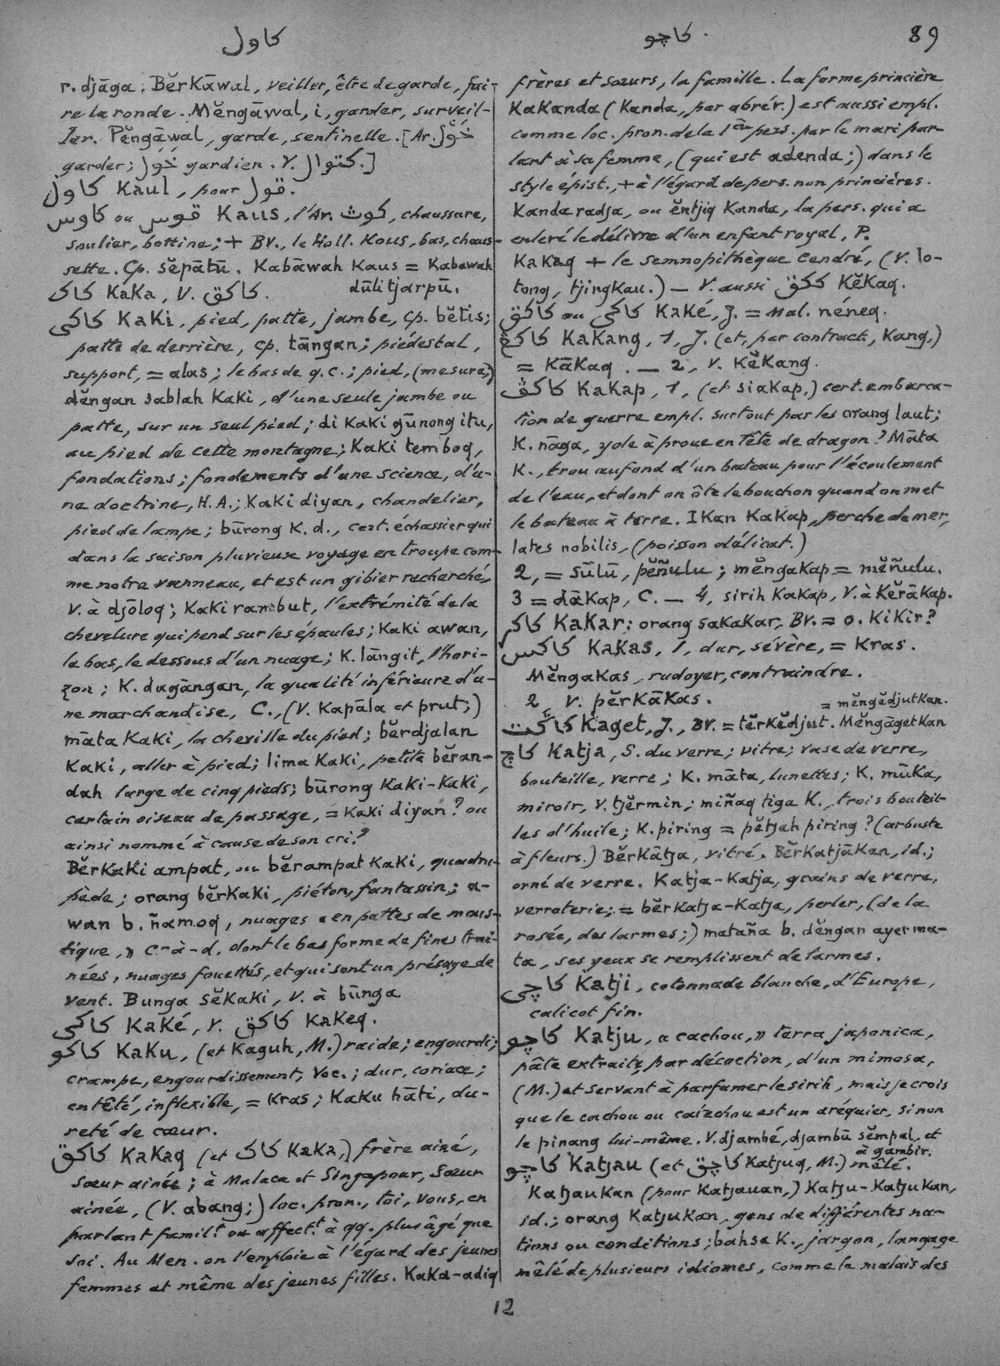 كاول
كاچو
89
r. djāga; BĕrKāwal, veiller, être de garde, fai-
re la ronde. Mĕngāwal, i, garder, surveil-
ler. Pĕngāwal, garde, sentinelle. [Ar. خَوَّل
garder; خول gardien. V. كتوال.]
كاول Kāul, pour قول.
كاوس ou قوس Kaus, l'Ar. كوث, chaussure,
soulier, bottine; + BV., le Holl. Kous, bas, chaus-
sette. Cp. sĕpātū. Kabāwah Kaus = Kabawah
dūlitjarpū.
كاك KaKa, V. كاكق.
كاكي KaKi, pied, patte, jambe, cp. bĕtis;
patte de derrière, cp. tāngan; piédestal,
support, = alas; le bas de q.c.; pied, (mesure;)
dĕngan sablah KaKi, d'une seule jambe ou
patte, sur un seul pied; di KaKi gūnong itu,
au pied de cette montagne; KaKi temboq,
fondations; fondements d'une science, d'u-
ne doctrine, H.A.; KaKi diyan, chandelier,
pied de lampe; būrong K.d., cert. échassier qui
dans la saison pluvieuse voyage en troupe com-
me notre vanneau, et est un gibier recherché,
V. à djōloq; KaKi rambut, l'extrémité de la
chevelure qui pend sur les épaules; KaKi awan,
le bas, le dessous d'un nuage; K. lāngit, l'hori-
zon; K. dagāngan, la qualité inférieure d'u-
ne marchandise, C., (V. Kapāla et prut;)
māta KaKi, la cheville du pied; bĕrdjalan
KaKi, aller à pied; lima KaKi, petite bĕran-
dah large de cinq pieds; būrong KaKi-KaKi,
certain oiseau de passage, = KaKi diyan? ou
ainsi nommé à cause de son cri?
BĕrKaKi ampat, ou bĕrampat KaKi, quadru-
pède; orang bĕrKaKi, piéton, fantassin; a-
wan b. ñamoq, nuages « en pattes de mous-
tique, » c-à-d. dont le bas forme de fines traî-
nées, nuages fouettés, et qui sont un présage de
vent. Bunga sĕKaKi, V. à būnga
كاكي KaKé, V. كاكق KaKeq.
كاكو KaKu, (et Kaguh, M.) raide; engourdi;
crampe, engourdissement, Voc.; dur, coriace;
entêté, inflexible, = Kras; KaKu hāti, du-
reté de cœur.
كاكق KaKaq (et كاك KaKa,) frère ainé,
sœur ainée; à Malaca et Singapour, Sœur
ainée, (V. abang;) loc. pron., toi, vous, en
parlant famil.t ou affect.t à qq. plus âgé que
soi. Au Men. on l'emploie à l'égard des jeunes
femmes et même des jeunes filles. KaKa-adiq
frères et sœurs, la famille. La forme princière
KaKanda (Kanda, par abrév.) est aussi empl.
comme loc. pron. de la 1ère pers. par le mari par-
lant à sa femme, (qui est adenda;) dans le
style épist., + à l'égard de pers. non princières.
Kanda radja, ou ĕntjiq Kanda, la pers. qui a
enlevé le délivre d'un enfant royal, P.
KaKaq + le semnopithèque cendré, (V. lo-
tong, tjingKau.) — V. aussi ككق KĕKaq.
كاكي ou كاكق KaKé, J. = Mal. néneq.
كاكڠ KaKang, 1, J. (et, par contract., Kang,)
= KāKaq. — 2, V. KĕKang.
كاكڤ KaKap, 1, (et siaKap,) cert. embarca-
tion de guerre empl. surtout par les orang laut;
K. nāga, yole à proue en tête de dragon? Māta
K., trou au fond d'un bateau pour l'écoulement
de l'eau, et dont on ôte le bouchon quand on met
le bateau à terre. IKan KaKap, perche de mer,
lates nobilis, (poisson délicat.)
2, = sūlū, pĕñulu; mĕngaKap = mĕñulu.
3 = dāKap, C. — 4, sirih KaKap, V. à KĕrāKap.
كاكر KaKar; orang saKaKar, BV. = o. KiKir?
كاكس KaKas, 1, dur, sévère, = Kras.
MĕngaKas, rudoyer, contraindre.
2, V. pĕrKāKas.
كاڬت Kaget, J., BV. = tĕrKĕdjut. MĕngāgetKan = mĕngĕdjutKan.
كاچ Katja, S. du verre; vitre; vase de verre,
bouteille, verre; K. māta, lunettes; K. mūKa,
miroir, V. tjĕrmin; miñaq tiga K., trois bouteil-
les d'huile; K. piring = pĕtjah piring? (arbuste
à fleurs.) BĕrKātja, vitré. BĕrKatjāKan, id.;
orné de verre. Katja-Katja, grains de verre,
verroterie; = bĕrKatja-Katja, perler, (de la
rosée, des larmes;) mataña b. dĕngan ayer ma-
ta, ses yeux se remplissent de larmes.
كاچي Katji, cotonnade blanche, d'Europe,
calicot fin.
كاچو Katju, « cachou, » terra japonica,
pâte extraite par décoction, d'un mimosa,
(M.) et servant à parfumer le sirih, mais je crois
que le cachou ou caïtchou est un aréquier, sinon
le pinang lui-même. V. djambé, djambū sĕmpal, et
à gambir.
كاچو Katjau (et كاچق Katjuq, M.) mêlé.
KatjauKan (pour Katjauan,) Katju-KatjuKan,
id.; orang KatjuKan, gens de différentes na-
tions ou conditions; bahsa K., jargon, langage
mêlé de plusieurs idiomes, comme le malais des
12